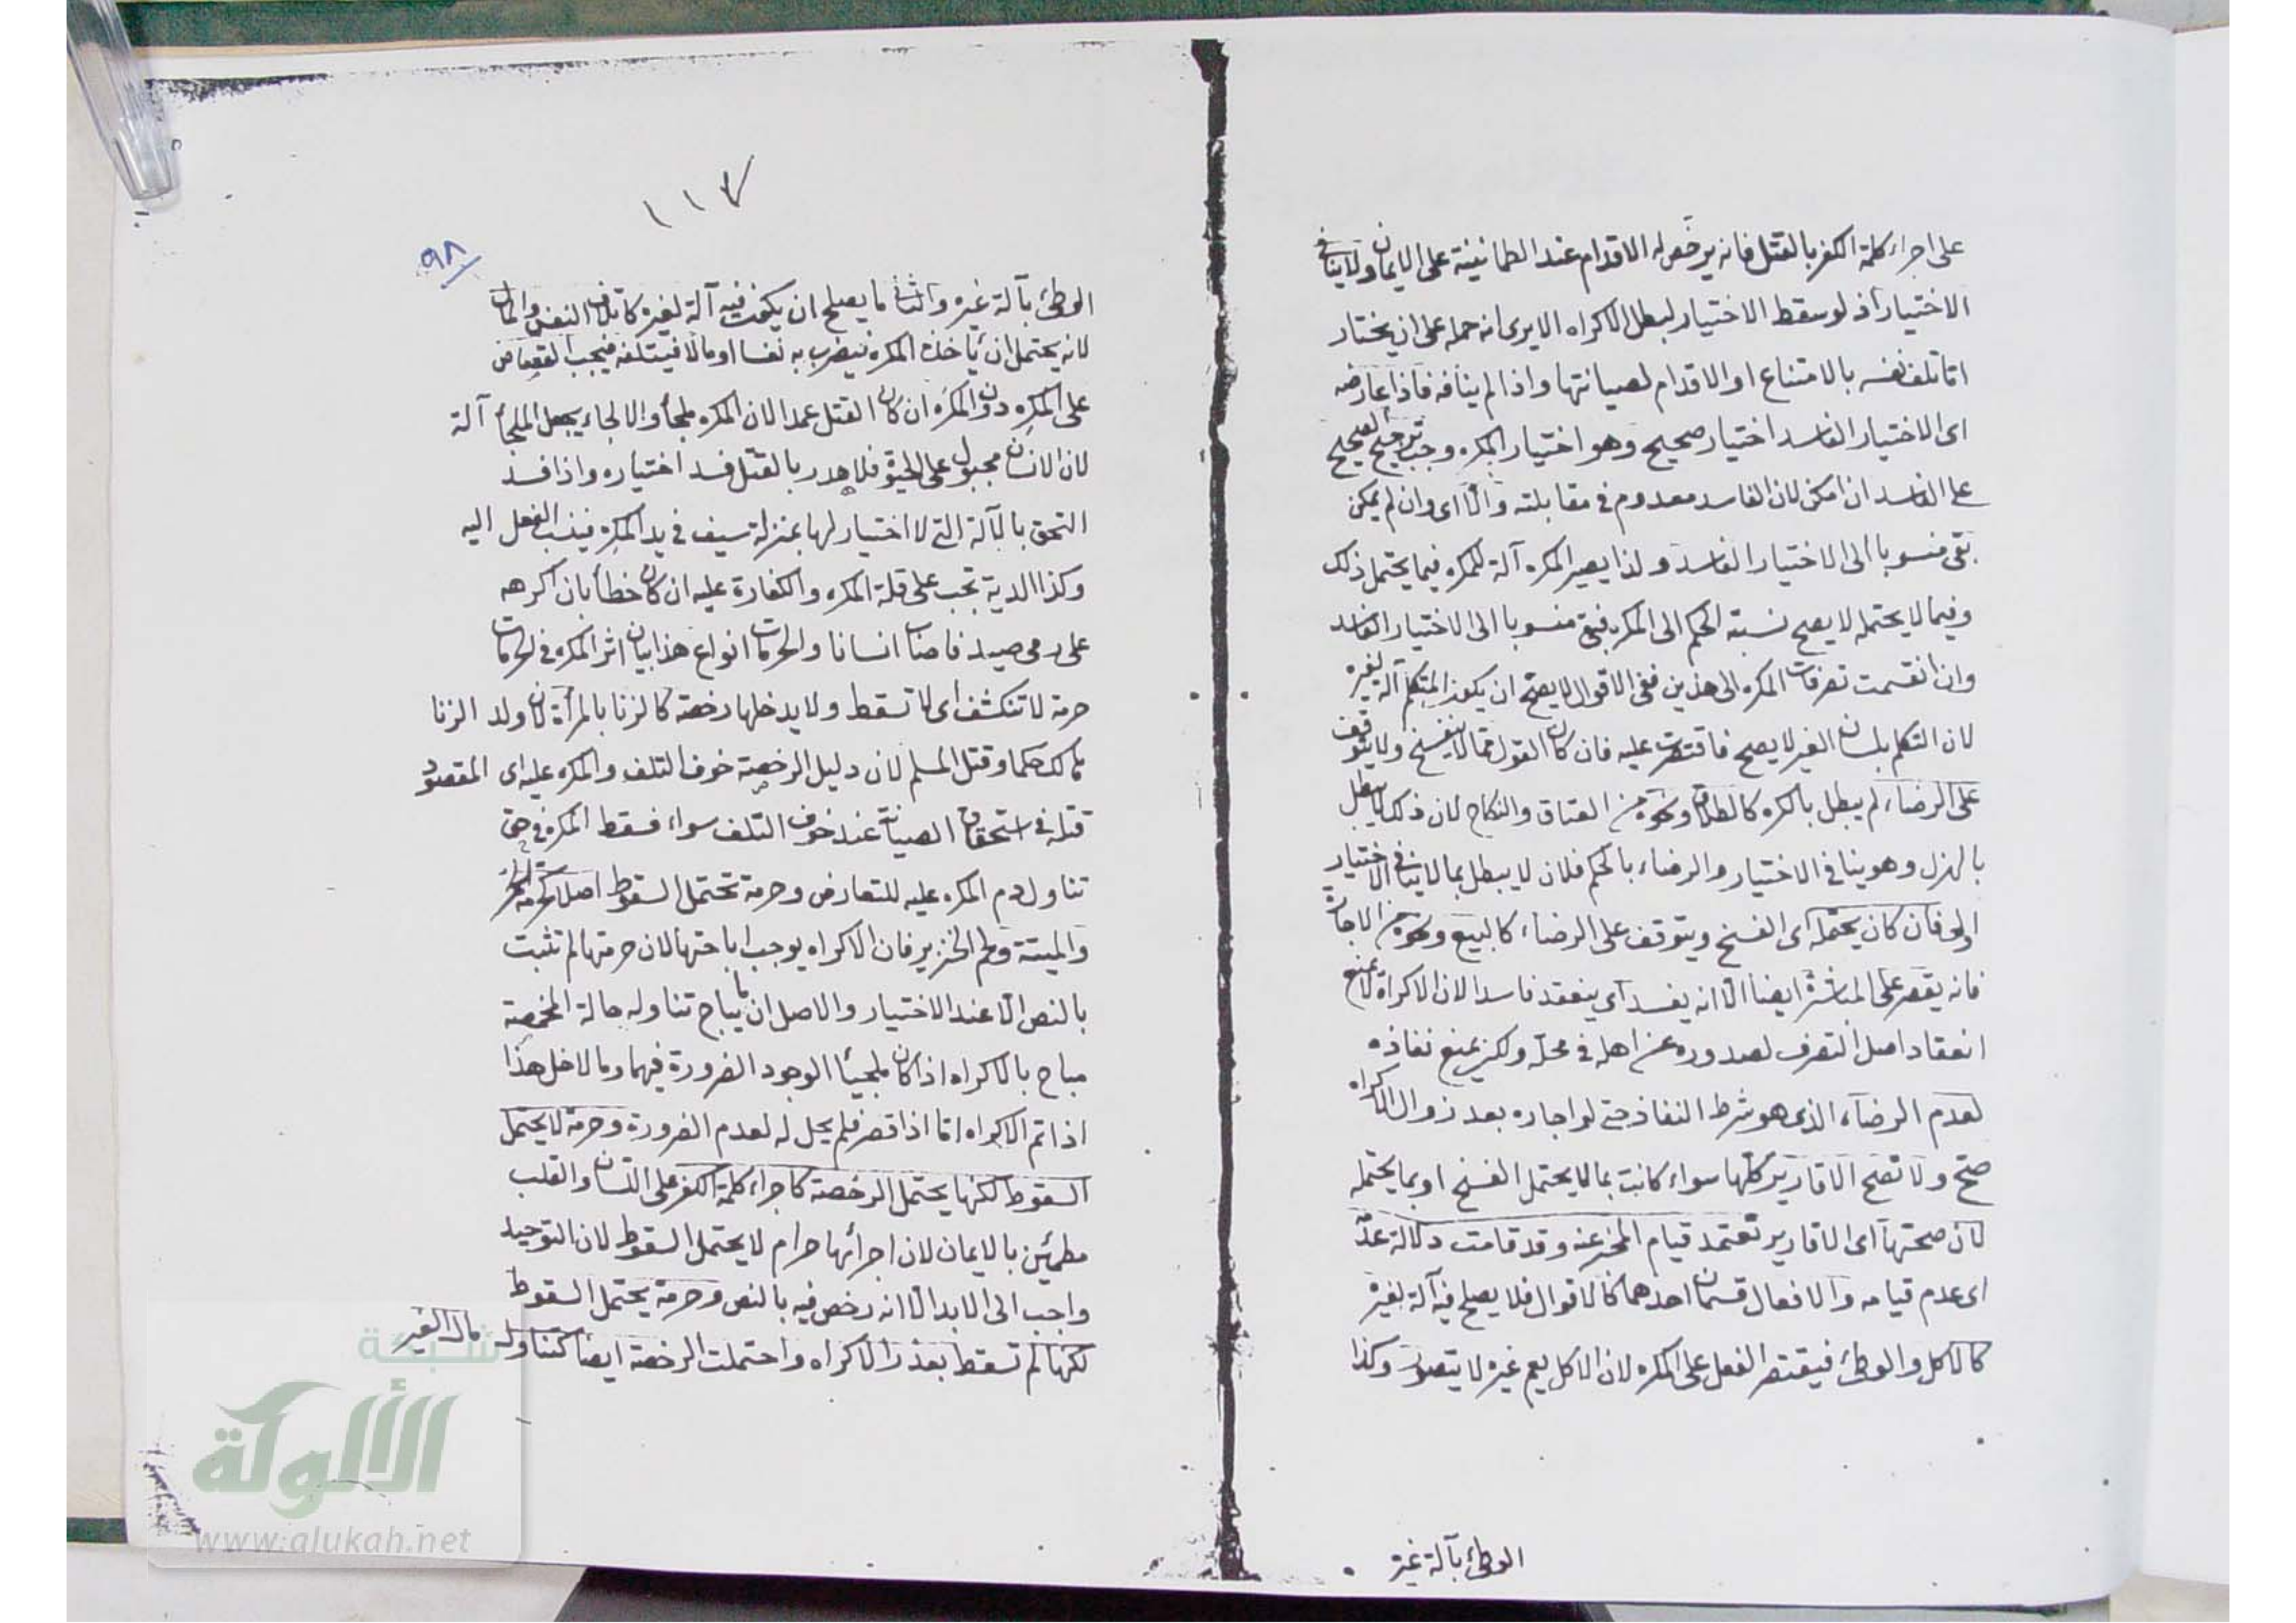 على اجراء كلمة الكفر بالقتل فانه يرخص له الاقدام عند الطمانينة على الايمان ولا ينافى
الاختيار اذ لو سقط الاختيار لبطل الاكراه الا يرى انه حمله على ان يختار
اما تلف نفسه بالامتناع او الاقدام لصيانتها واذا لم ينافه فاذا عارضه
اى الاختيار الفاسد اختيار صحيح وهو اختيار المكره وجب ترجيح الصحيح
على الفاسد ان امكن لان الفاسد معدوم فى مقابلته والّا اى وان لم يمكن
بقى منسوبا الى الاختيار الفاسد ولذا يصير المكره آلة للمكره فيما يحتمل ذلك
وفيما لا يحتمله لا يصح نسبة الحكم الى المكره فبقى منسوبا الى الاختيار الفاسد
وان انقسمت تصرفات المكره الى هذين ففى الاقوال لا يصح ان يكون المتكلم آلة لغيره
لان التكلم بلسان الغير لا يصح فاقتصرت عليه فان كان القول مما لا ينفسخ ولا يتوقف
على الرضاء لم يبطل بالكره كالطلاق ونحوه من العتاق والنكاح لان ذلك لا يبطل
بالهزل وهو ينافى الاختيار والرضاء بالحكم فلان لا يبطل بما لا ينافى الاختيار
اولى فان كان يحتمله اى الفسخ ويتوقف على الرضاء كالبيع ونحوه من الاجارة
فانه يقصر على المباشرة ايضا الّا انه يفسد اى ينعقد فاسدا لان الاكراه لا يمنع
انعقاد اصل التصرف لصدوره عن اهله فى محلّه ولكن يمنع نفاذه
لعدم الرضاء الذى هو شرط النفاذ حتى لو اجاره بعد زوال الاكراه
صح ولا تصح الاقارير كلها سواء كانت بما لا يحتمل الفسخ او بما يحتمله
لان صحتها اى الاقارير تعتمد قيام المخبر عنه وقد قامت دلالة عدمه
اى عدم قيامه والافعال قسمان احدهما كالاقوال فلا يصلح فيه آلة لغيره
كالاكل والوطئ فيقتصر الفعل على المكره لان الاكل بفم غيره لا يتصور وكذا
الوطئ بآلة غيره
١١٧
٩٨
الوطئ بآلة غيره والثانى ما يصلح ان يكون فيه آلة لغيره كاتلاف النفس والمال
لانه يحتمل ان ياخذه المكره فيضرب به نفسا او مالا فيتلفه فيجب القصاص
على المكرِه دون المكرَه ان كان القتل عمدا لان المكره ملجأ والالجاء يجعل الملجأ آلة
لان الانسان مجبول على الحيوة فلا هدر بالقتل فسد اختياره واذا فسد
التحق بالآلة التى لا اختيار لها بمنزلة سيف فى يد المكره فينسب الفعل اليه
وكذا الدية تجب على قلة المكره والكفارة عليه ان كان خطأ بان اكرهه
على رمى صيد فاصاب انسانا والحرمات انواع هذا بيان اثر المكره فى الحرمات
حرمة لا تنكشف اى لا تسقط ولا يدخلها رخصة كالزنا بالمرأة لان ولد الزنا
هالك حكما وقتل المسلم لان دليل الرخصة خوف التلف والمكره عليه اى المقصود
قتله فى استحقاق الصيانة عند خوف التلف سواء فسقط المكره فى حق
تناول دم المكره عليه للتعارض وحرمة تحتمل السقوط اصلا كحرمة الخمر
والميتة ولحم الخنزير فان الاكراه يوجب اباحتها لان حرمتها لم تثبت
بالنص الّا عند الاختيار والاصل ان ما يباح تناوله حالة المخمصة
مباح بالاكراه اذا كان ملجئا لوجود الضرورة فيهما وما لا خل هذا
اذا تم الاكراه اما اذا قصر فلم يحل له لعدم الضرورة وحرمة لا يحتمل
السقوط لكنها يحتمل الرخصة كاجراء كلمة الكفر على اللسان والقلب
مطمئين بالايمان لان اجرائها حرام لا يحتمل السقوط لان التوحيد
واجب الى الابد الّا انه رخص فيه بالنص وحرمة يحتمل السقوط
لكنها لم تسقط بعذر الاكراه واحتملت الرخصة ايضا كتناوله مال الغير
شبكة
الألوكة
www.alukah.net